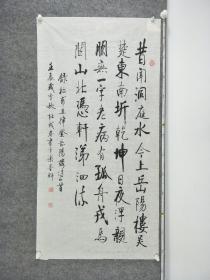 昔聞洞庭水今上岳陽樓吳
楚東南坼乾坤日夜浮親
朋無一字老病有孤舟戎馬
關山北憑軒涕泗流
錄杜甫五律登岳陽樓詩一首
壬辰歲